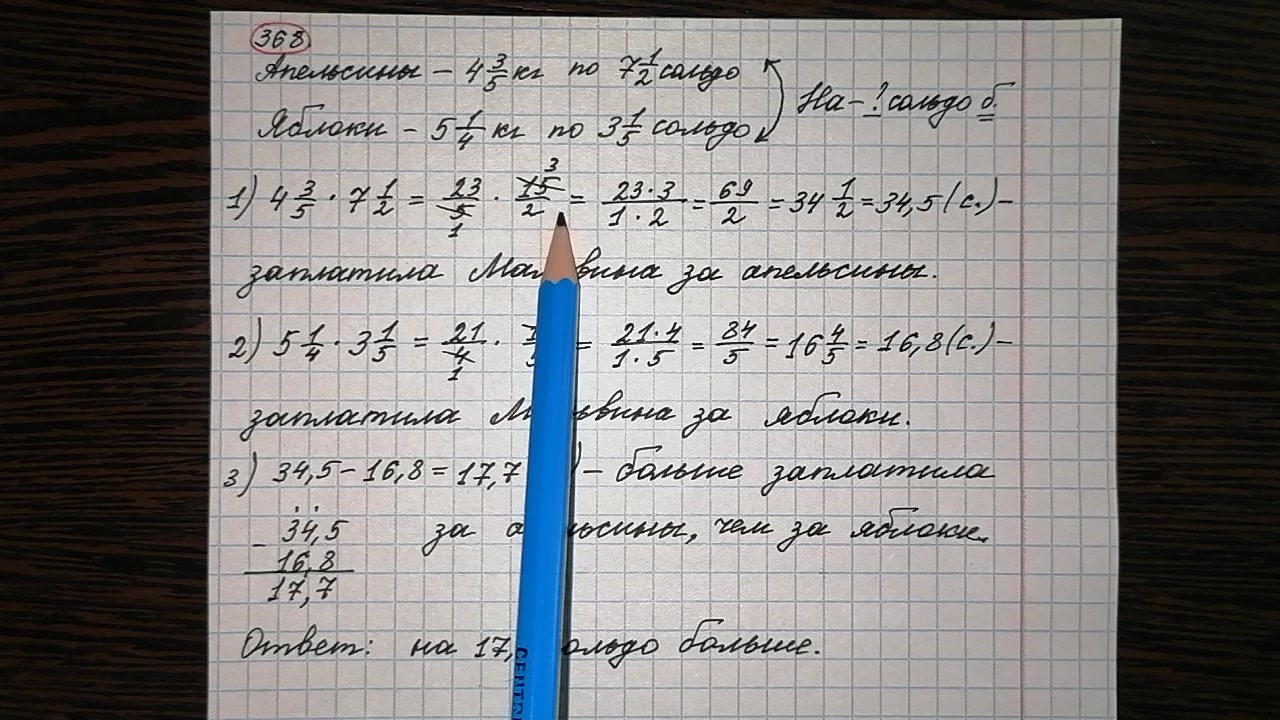 368.
Апельсины – 4 3/5 кг по 7 1/2 сольдо
На – ? сольдо б.
Яблоки – 5 1/4 кг по 3 1/5 сольдо
1) 4 3/5 · 7 1/2 = 23/5 · 15/2 = 23·3/1·2 = 69/2 = 34 1/2 = 34,5 (с.) –
заплатила Мальвина за апельсины.
2) 5 1/4 · 3 1/5 = 21/4 · = 21·4/1·5 = 84/5 = 16 4/5 = 16,8 (с.) –
заплатила Мальвина за яблоки.
3) 34,5 – 16,8 = 17,7 ) – больше заплатила
за апельсины, чем за яблоки.
34,5
– 16,8
17,7
Ответ: на 17, сольдо больше.
CENTR